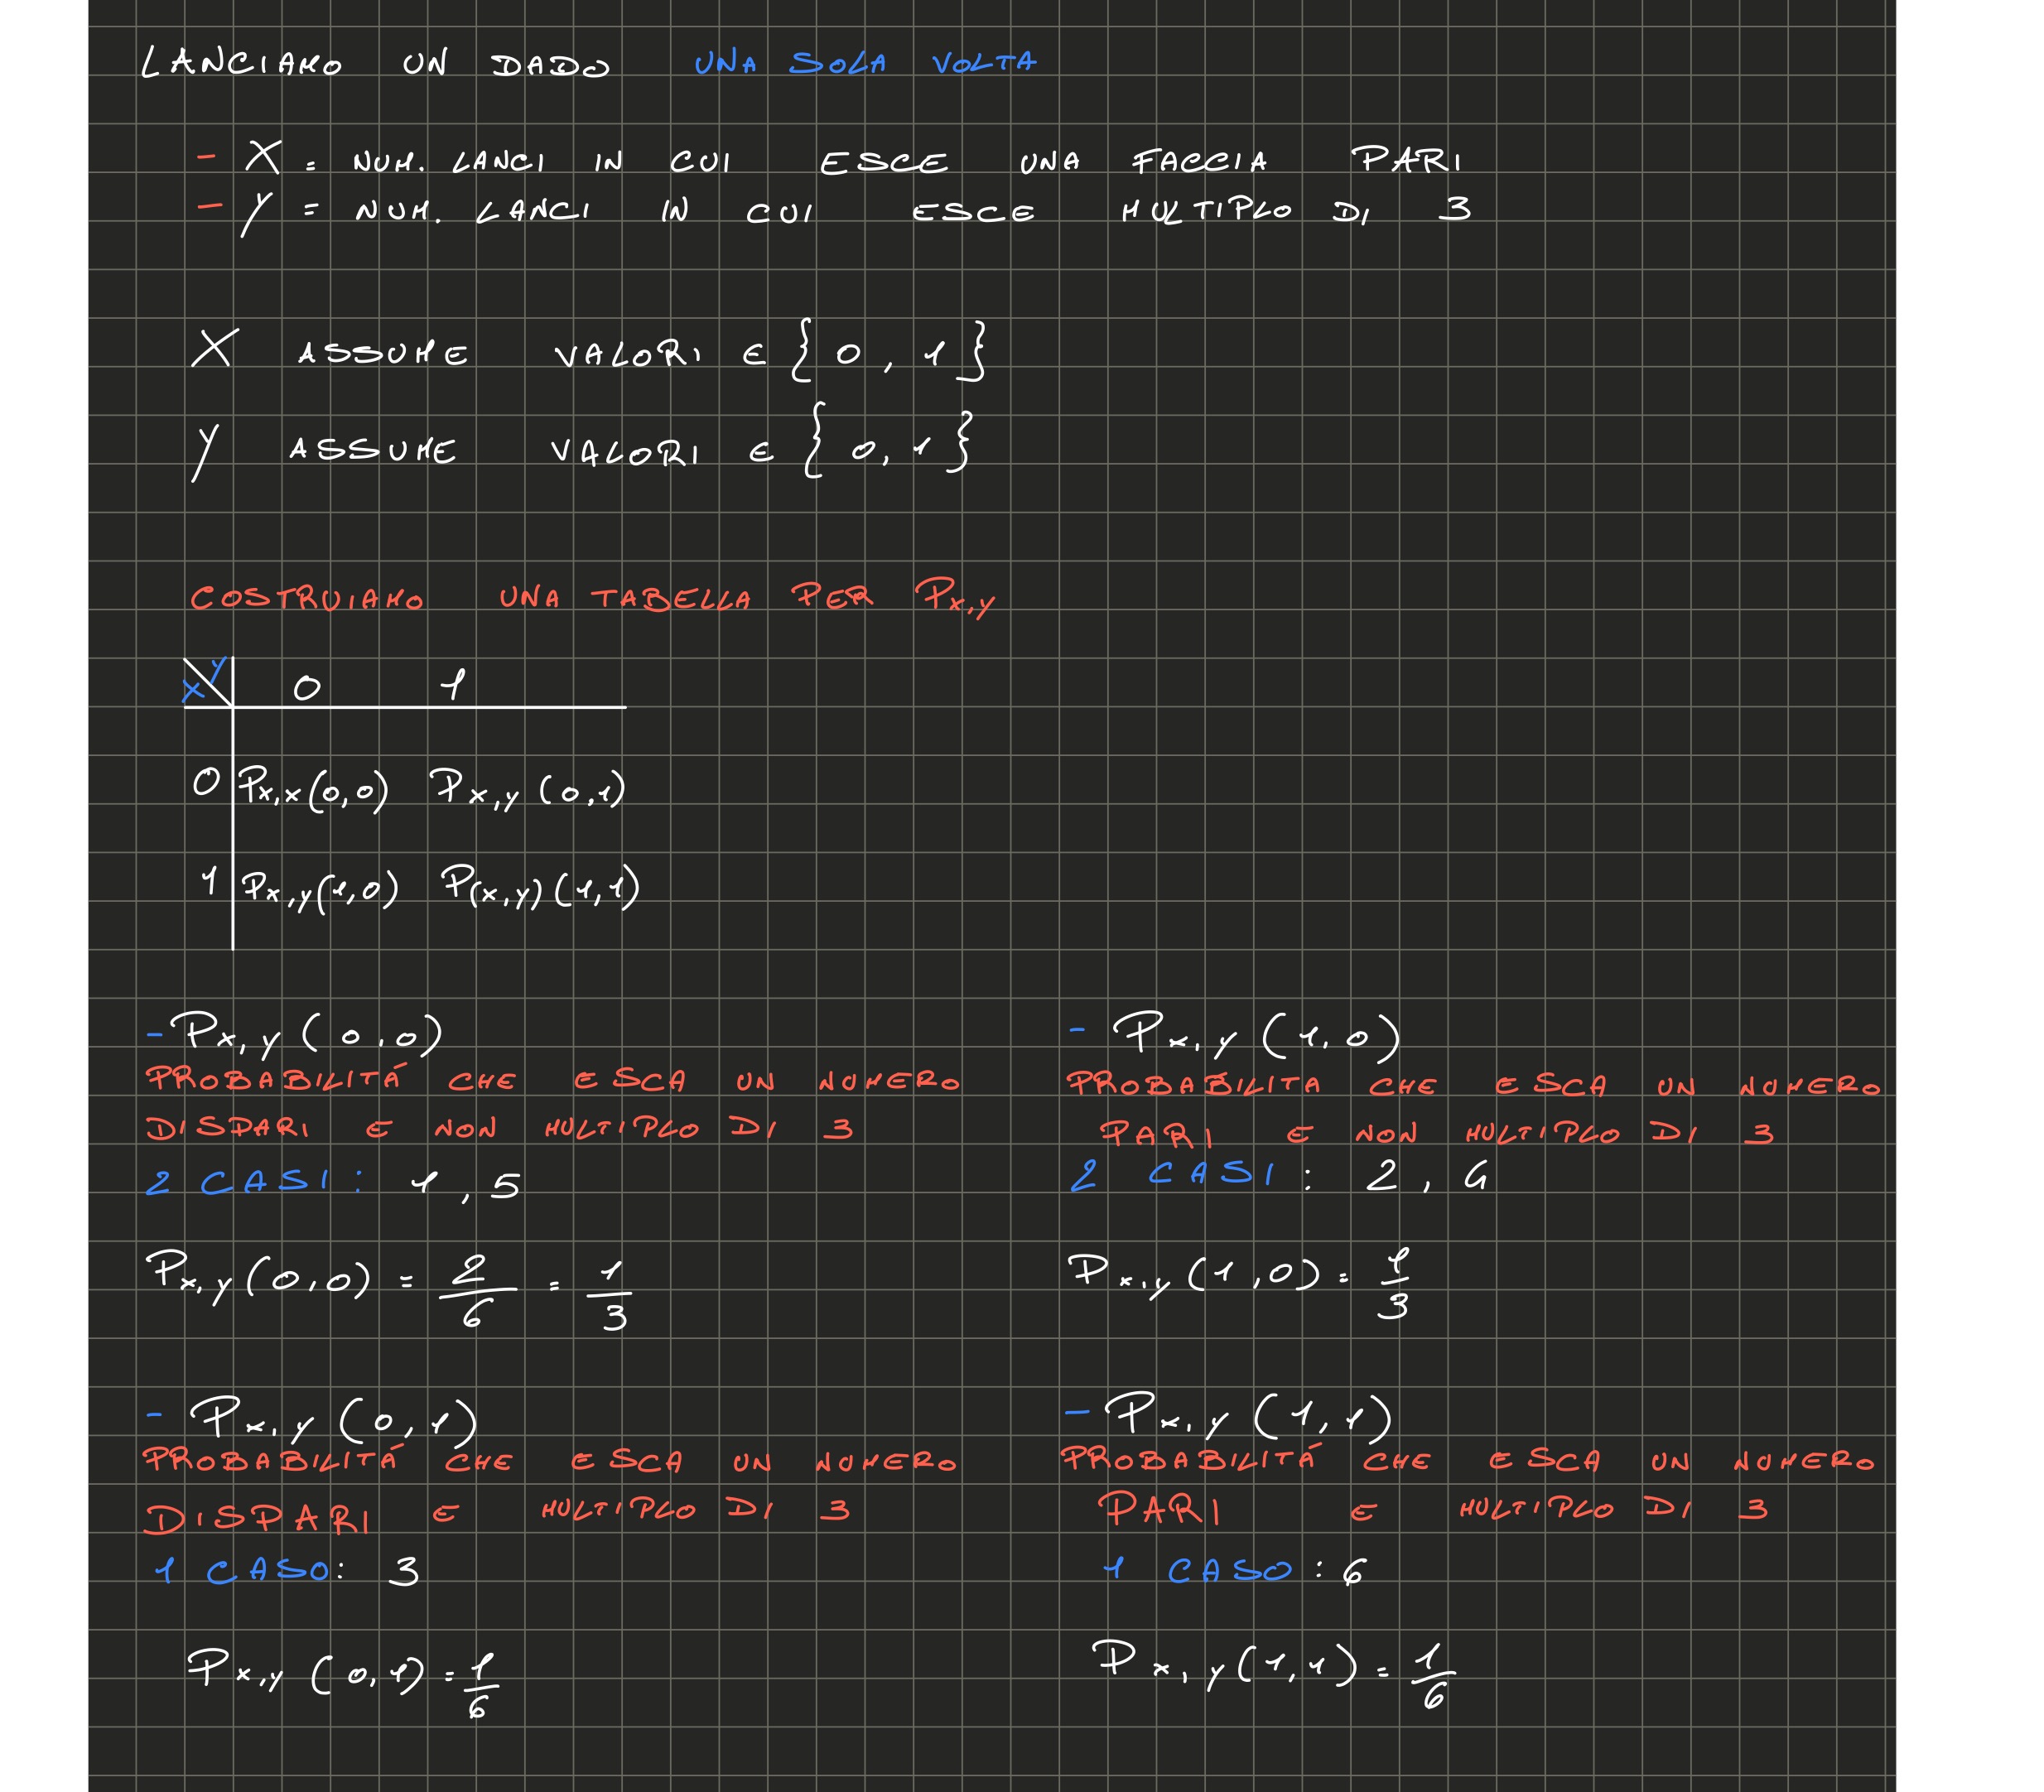 LANCIAMO UN DADO UNA SOLA VOLTA
- X = NUM. LANCI IN CUI ESCE UNA FACCIA PARI
- Y = NUM. LANCI IN CUI ESCE MULTIPLO DI 3
X ASSUME VALORI ∈ {0, 1}
Y ASSUME VALORI ∈ {0, 1}
COSTRUIAMO UNA TABELLA PER Px,y
X Y 0 1
0 Px,x(0,0) Px,y(0,1)
1 Px,y(1,0) P(x,y)(1,1)
- Px,y(0,0)
PROBABILITÁ CHE ESCA UN NUMERO
DISPARI E NON MULTIPLO DI 3
2 CASI: 1, 5
Px,y(0,0) = 2/6 = 1/3
- Px,y(1,0)
PROBABILITA CHE ESCA UN NUMERO
PARI E NON MULTIPLO DI 3
2 CASI: 2, 4
Px,y(1,0) = 1/3
- Px,y(0,1)
PROBABILITÁ CHE ESCA UN NUMERO
DISPARI E MULTIPLO DI 3
1 CASO: 3
Px,y(0,1) = 1/6
- Px,y(1,1)
PROBABILITÁ CHE ESCA UN NUMERO
PARI E MULTIPLO DI 3
1 CASO: 6
Px,y(1,1) = 1/6